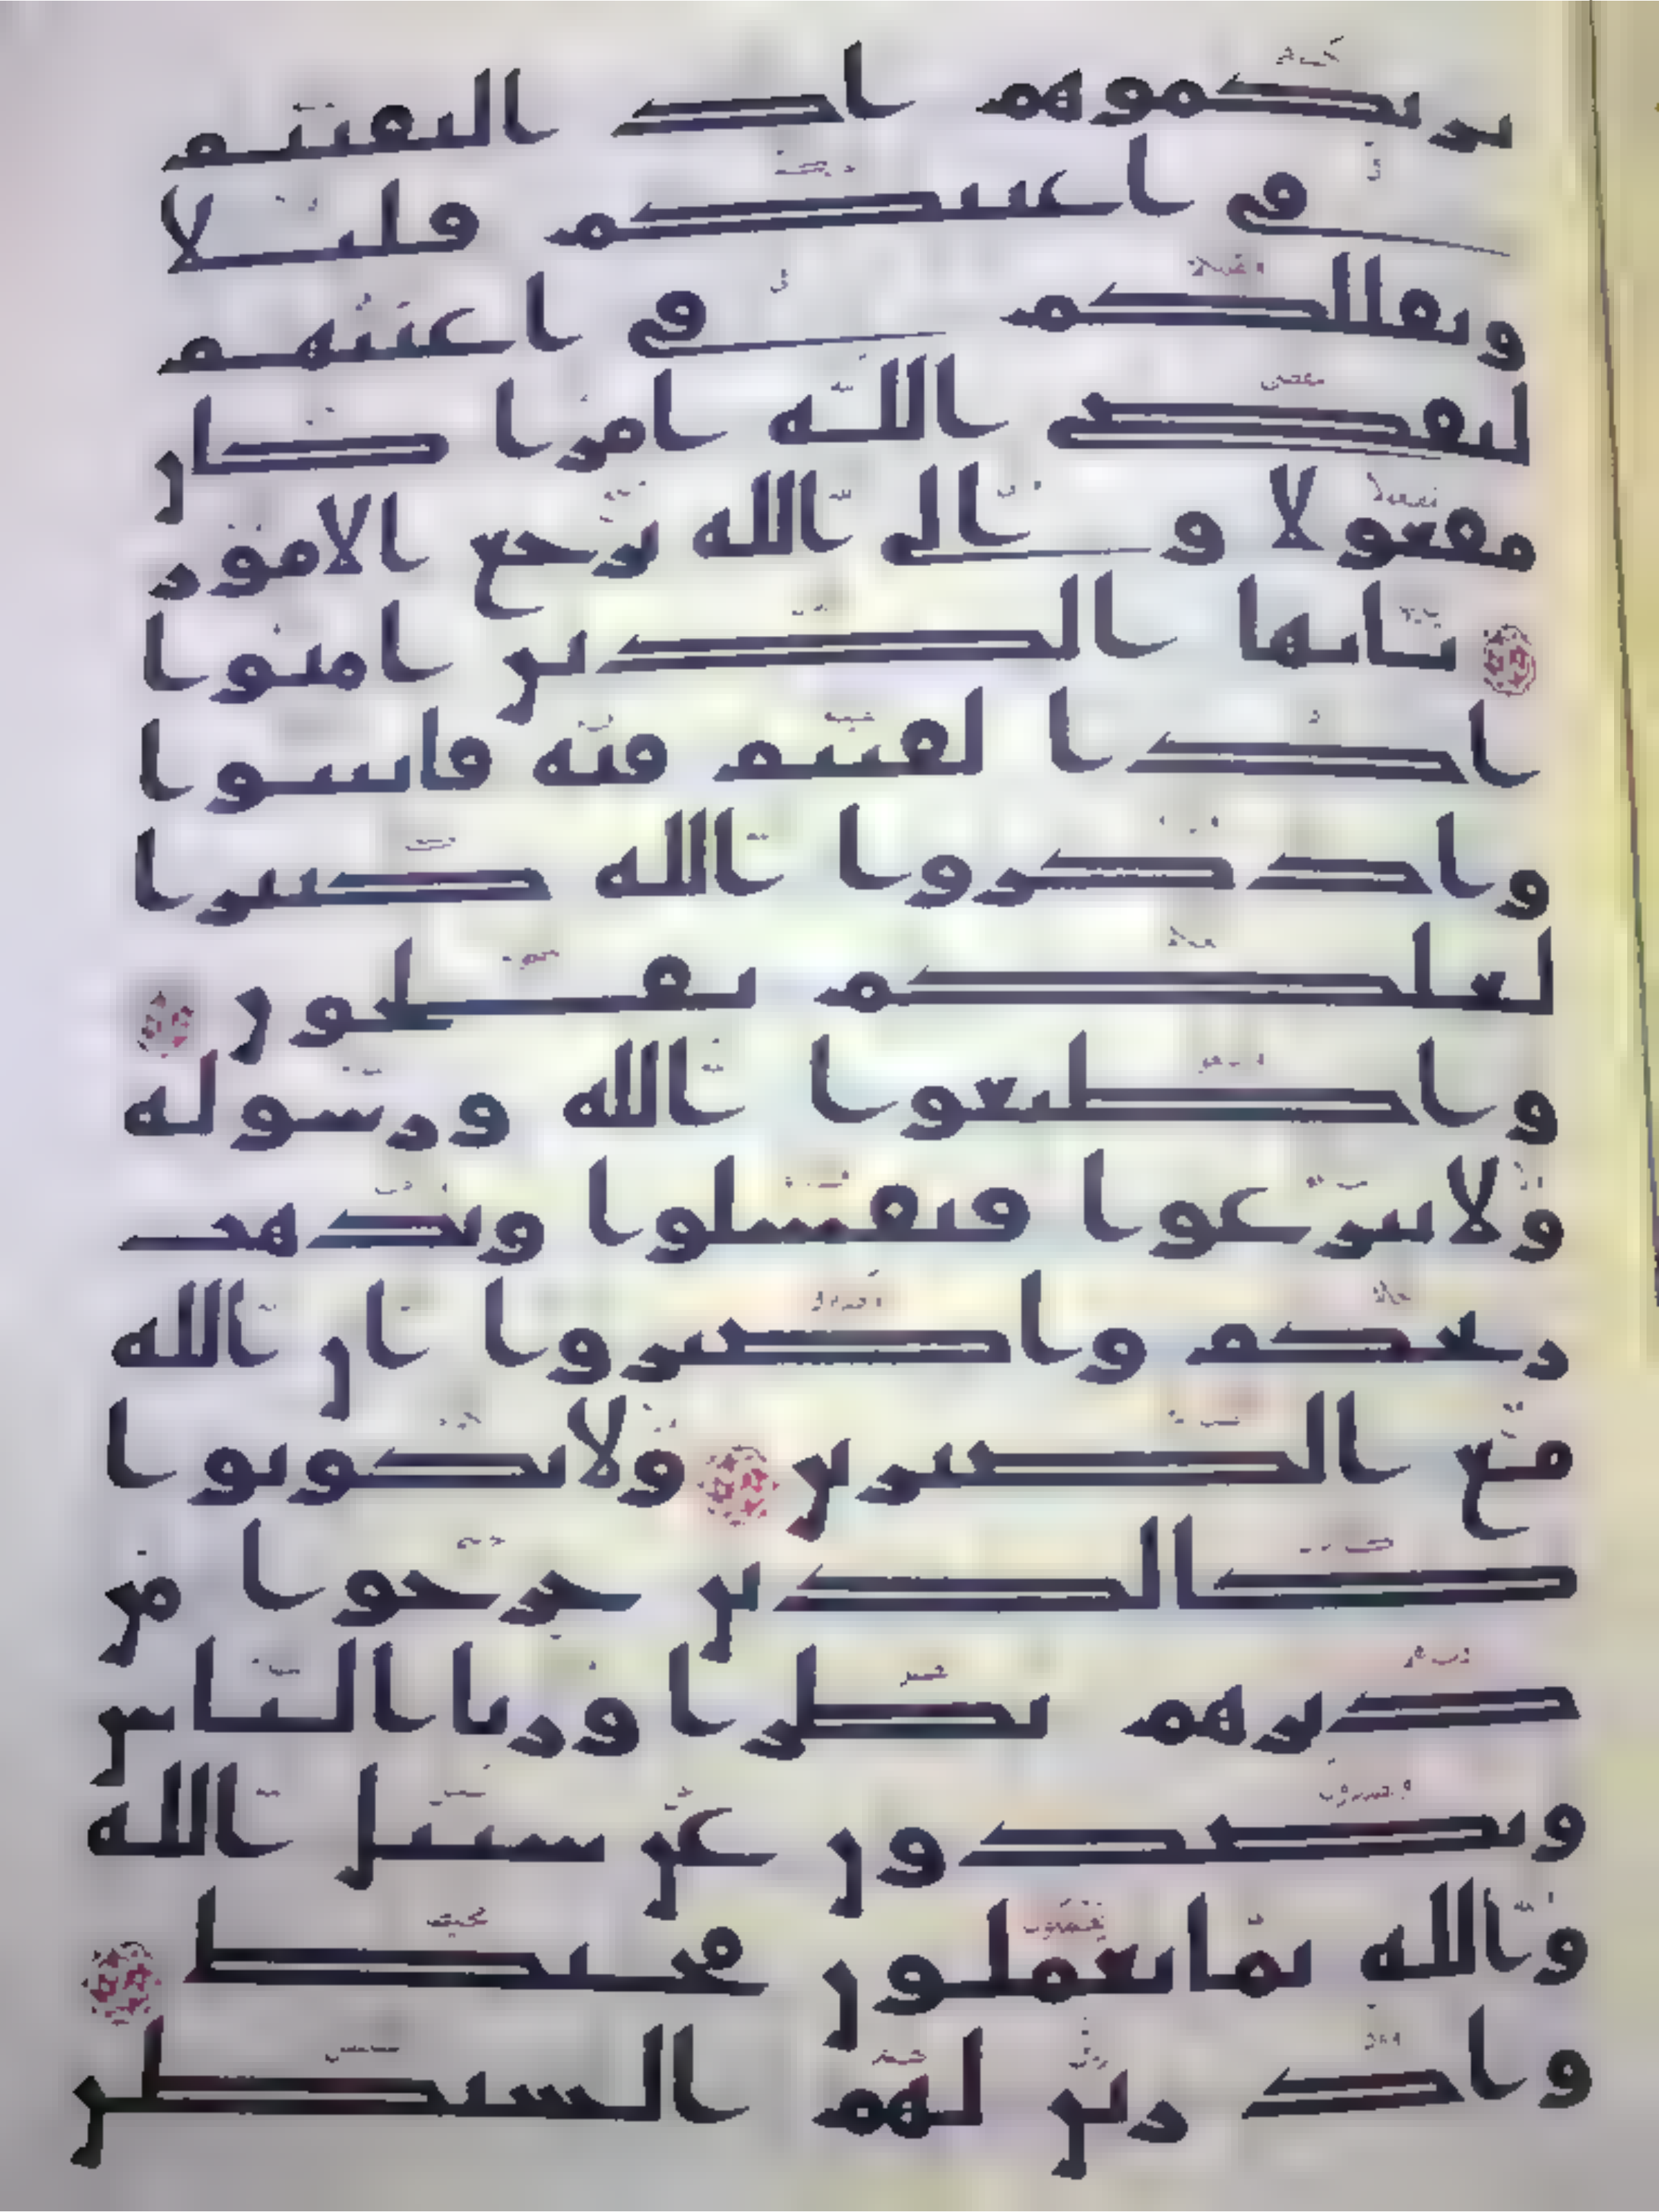 يريكموهم اذ التقيتم
في اعينكم قليلا
ويقللكم في اعينهم
ليقضي الله امرا كان
مفعولا و الى الله ترجع الامور
يايها الذين امنوا
اذا لقيتم فئه فاثبتوا
واذكروا الله كثيرا
لعلكم تفلحون
واطيعوا الله ورسوله
ولا تنزعوا فتفشلوا وتذهب
ريحكم واصبروا ان الله
مع الصبرين ولا تكونوا
كالذين خرجوا من
ديرهم بطرا ورئا الناس
ويصدون عن سبيل الله
والله بما يعملون محيط
واذ زين لهم الشيطن